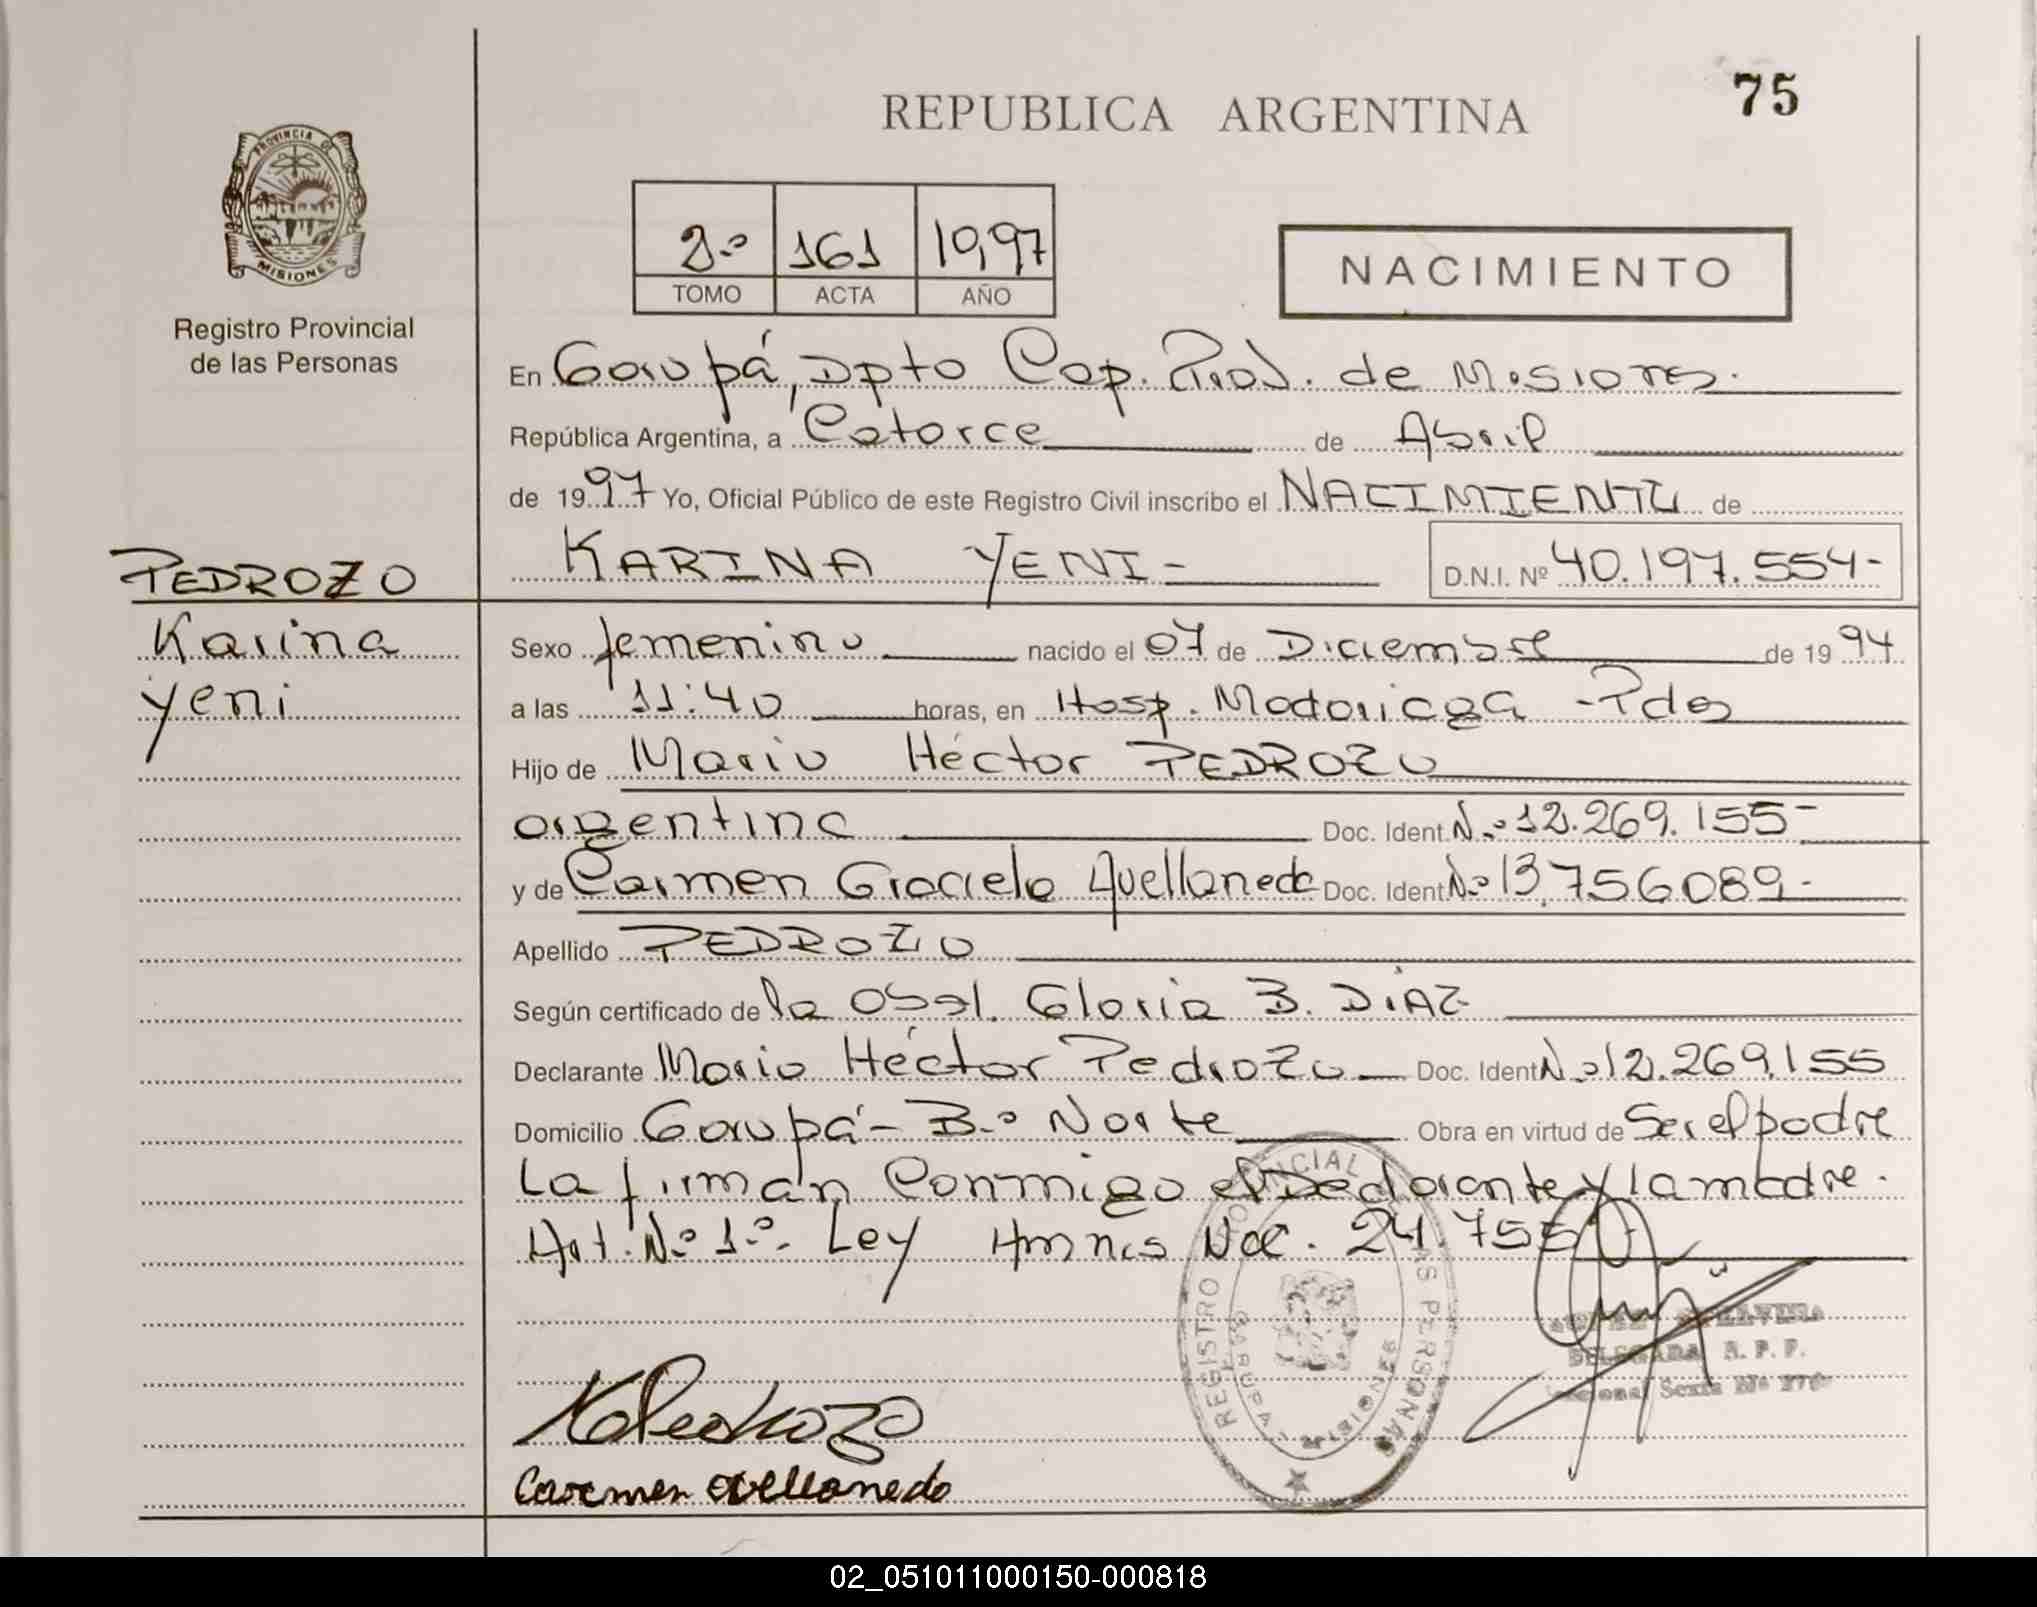 75
REPUBLICA ARGENTINA
PROVINCIA DE
MISIONES
Registro Provincial
de las Personas
2.º 161 1997
TOMO ACTA AÑO
NACIMIENTO
En Garupá, Dpto Cap. Prov. de Misiones.
República Argentina, a Catorce de Abril
de 1997 Yo, Oficial Público de este Registro Civil inscribo el NACIMIENTO de
KARINA YENI - D.N.I. Nº 40.197.554-
PEDROZO
Karina
Yeni
Sexo femenino nacido el 07 de Diciembre de 1994
a las 11:40 horas, en Hosp. Madariaga - Pdas
Hijo de Mario Héctor PEDROZO
argentino Doc. Ident. N.º 12.269.155-
y de Carmen Graciela Avellaneda Doc. Ident. Nº 13.756089-
Apellido PEDROZO
Según certificado de la Obst. Gloria B. DIAZ
Declarante Mario Héctor Pedrozo Doc. Ident. N.º 12.269.155
Domicilio Garupá - B.º Norte Obra en virtud de Ser el padre
La firman Conmigo el Declarante y la madre.
Art. N.º 1.º. Ley Amnis Nac. 24.755
REGISTRO PROVINCIAL DE LAS PERSONAS
GARUPA MISIONES
DELEGADA R. P. P.
Seccional Sexta
Pedrozo
Carmen Avellaneda
02_051011000150-000818